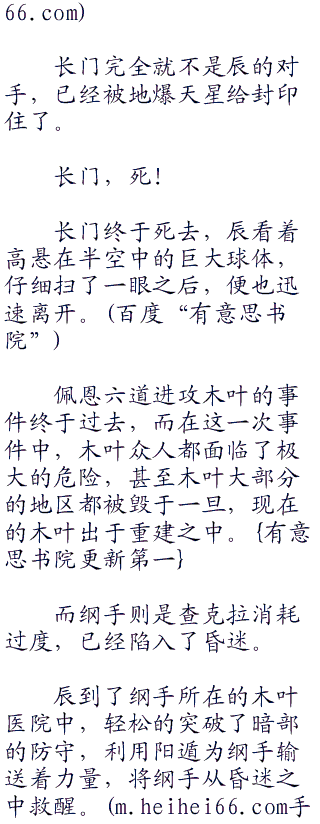 66.com)
长门完全就不是辰的对
手，已经被地爆天星给封印
住了。
长门，死！
长门终于死去，辰看着
高悬在半空中的巨大球体，
仔细扫了一眼之后，便也迅
速离开。(百度“有意思书
院”)
佩恩六道进攻木叶的事
件终于过去，而在这一次事
件中，木叶众人都面临了极
大的危险，甚至木叶大部分
的地区都被毁于一旦，现在
的木叶出于重建之中。{有意
思书院更新第一}
而纲手则是查克拉消耗
过度，已经陷入了昏迷。
辰到了纲手所在的木叶
医院中，轻松的突破了暗部
的防守，利用阳遁为纲手输
送着力量，将纲手从昏迷之
中救醒。(m.heihei66.com手